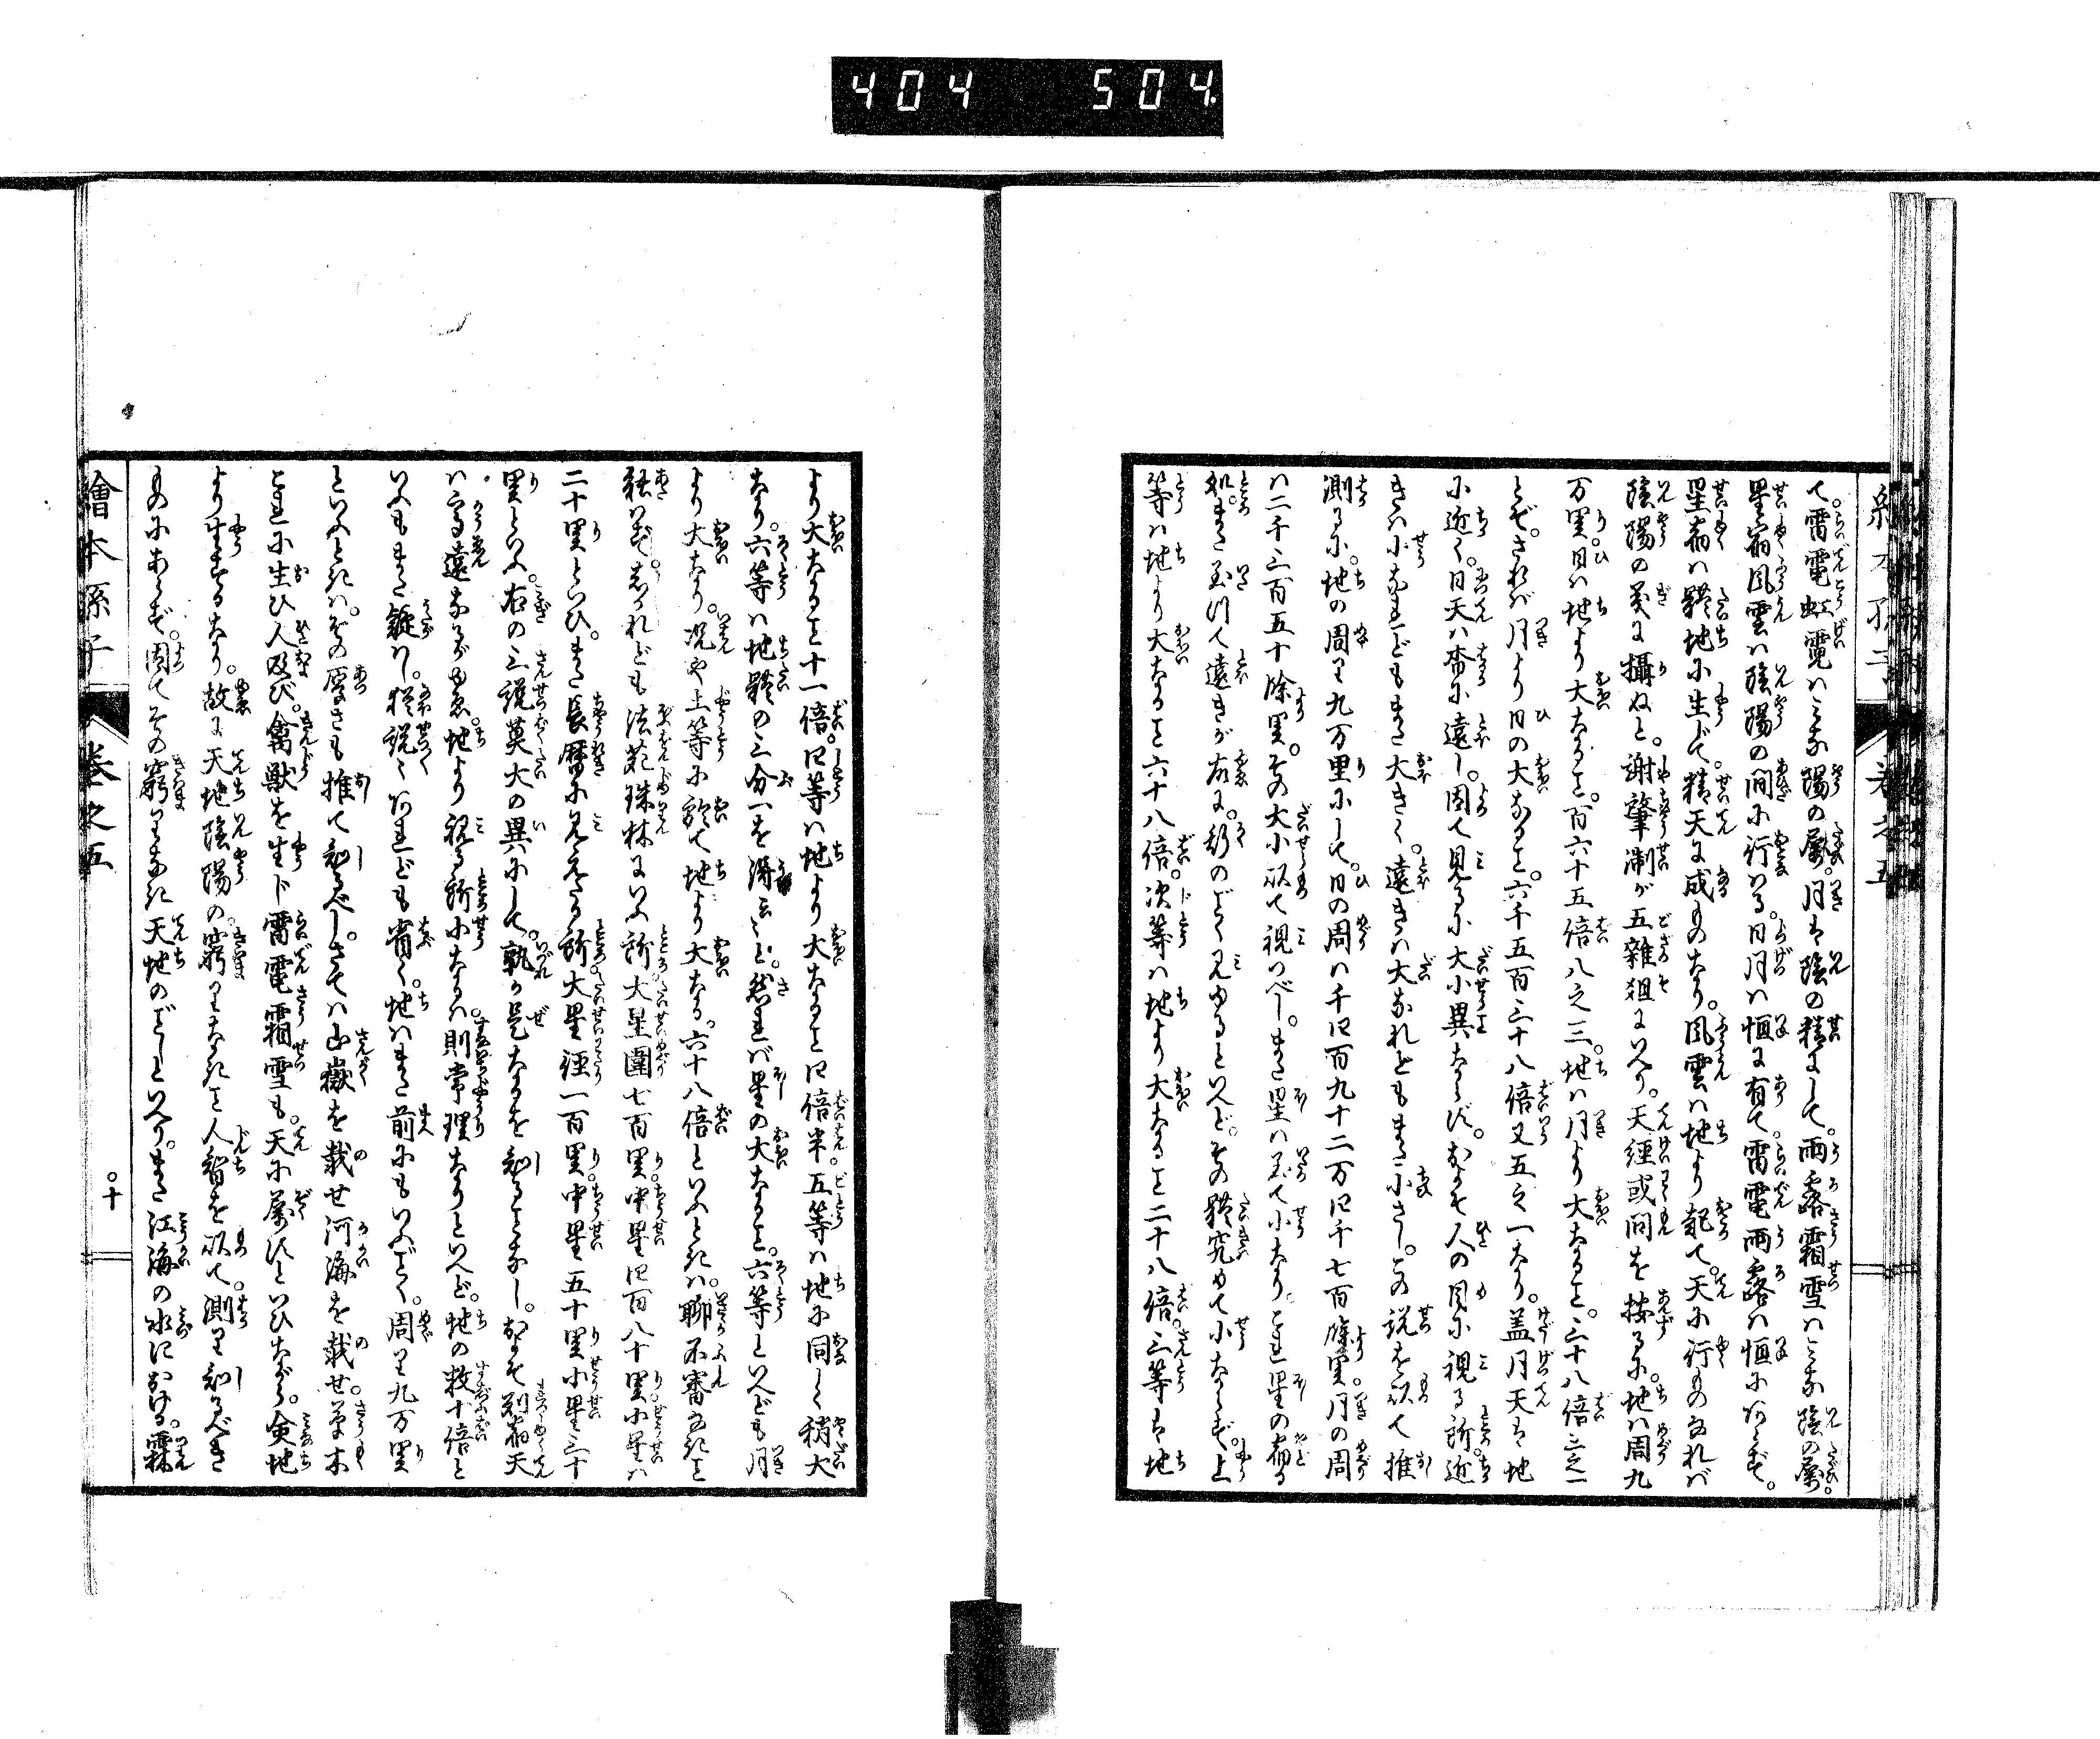 404 504.
て。雷電虹霓ハミな陽の属。月は陰の精にして。雨露霜雪ハミな陰の属。
星宿風雲ハ陰陽の間に行ハる。日月ハ恒に有て。雷電雨露ハ恒にあらず。
星宿ハ體地に生じて。精天に成ものなり。風雲ハ地より起て。天に行ものなれバ
陰陽の義に攝ぬと。謝肇淛が五雜俎にいへり。天經或問を按るに。地ハ周九
万里。日ハ地より大なること。百六十五倍八之三。地ハ月より大なること。三十八倍三之一
とぞ。されバ月より日の大なること。六千五百三十八倍又五之一なり。盖月天は地
に近く。日天ハ杳に遠し。因て見るに大小異ならず。およそ人の目に視る所。近
きハ小なれどもまた大きく。遠きハ大なれどもまた小さし。この説を以て推
測るに。地の周り九万里にして。日の周ハ千四百九十二万四千七百餘里。月の周
ハ二千三百五十餘里。その大小以て視つべし。また星ハ至て小なり。これ星の宿る
処また至つて遠きが故に。粉のごとく見ゆるといへど。その體究めて小ならず。上
等ハ地より大なること六十八倍。次等ハ地より大なること二十八倍。三等は地
より大なること十一倍。四等ハ地より大なること四倍半。五等ハ地に同しく稍大
なり。六等ハ地體の三分一を得と云々。然れバ星の大なること。六等といへども月
より大なり。況や上等に於て地より大なる。六十八倍といふときハ。聊不審なきこと
能ハず。しかれども法苑珠林にいふ所。大星圍七百里。中星四百八十里。小星ハ
二十里といひ。また長暦に見えたる所。大星徑一百里。中星五十里小星三十
里といふ。右の三説莫大の異にして。孰か是なるを知ることなし。およそ列宿天
ハ高遠なるがゆゑ。地より視る所小なるハ。則常理なりといへど。地の数十倍と
いふもまた疑ハし。猶説くあれども省く。地ハまた前にもいふごとく。周り九万里
といふときハ。その厚さも推て知べし。さてハ山嶽を載せ河海を載せ。草木
これに生ひ人及び。禽獣を生ド雷電霜雪も。天に属すといひながら。矣地
より生ずるなり。故に天地陰陽の。窮りなきこと人智を以て。測り知るべき
ものにあらず。因てその窮りなき天地のごとしといへり。また江海の水における。霖
繪本孫子 卷之五
十